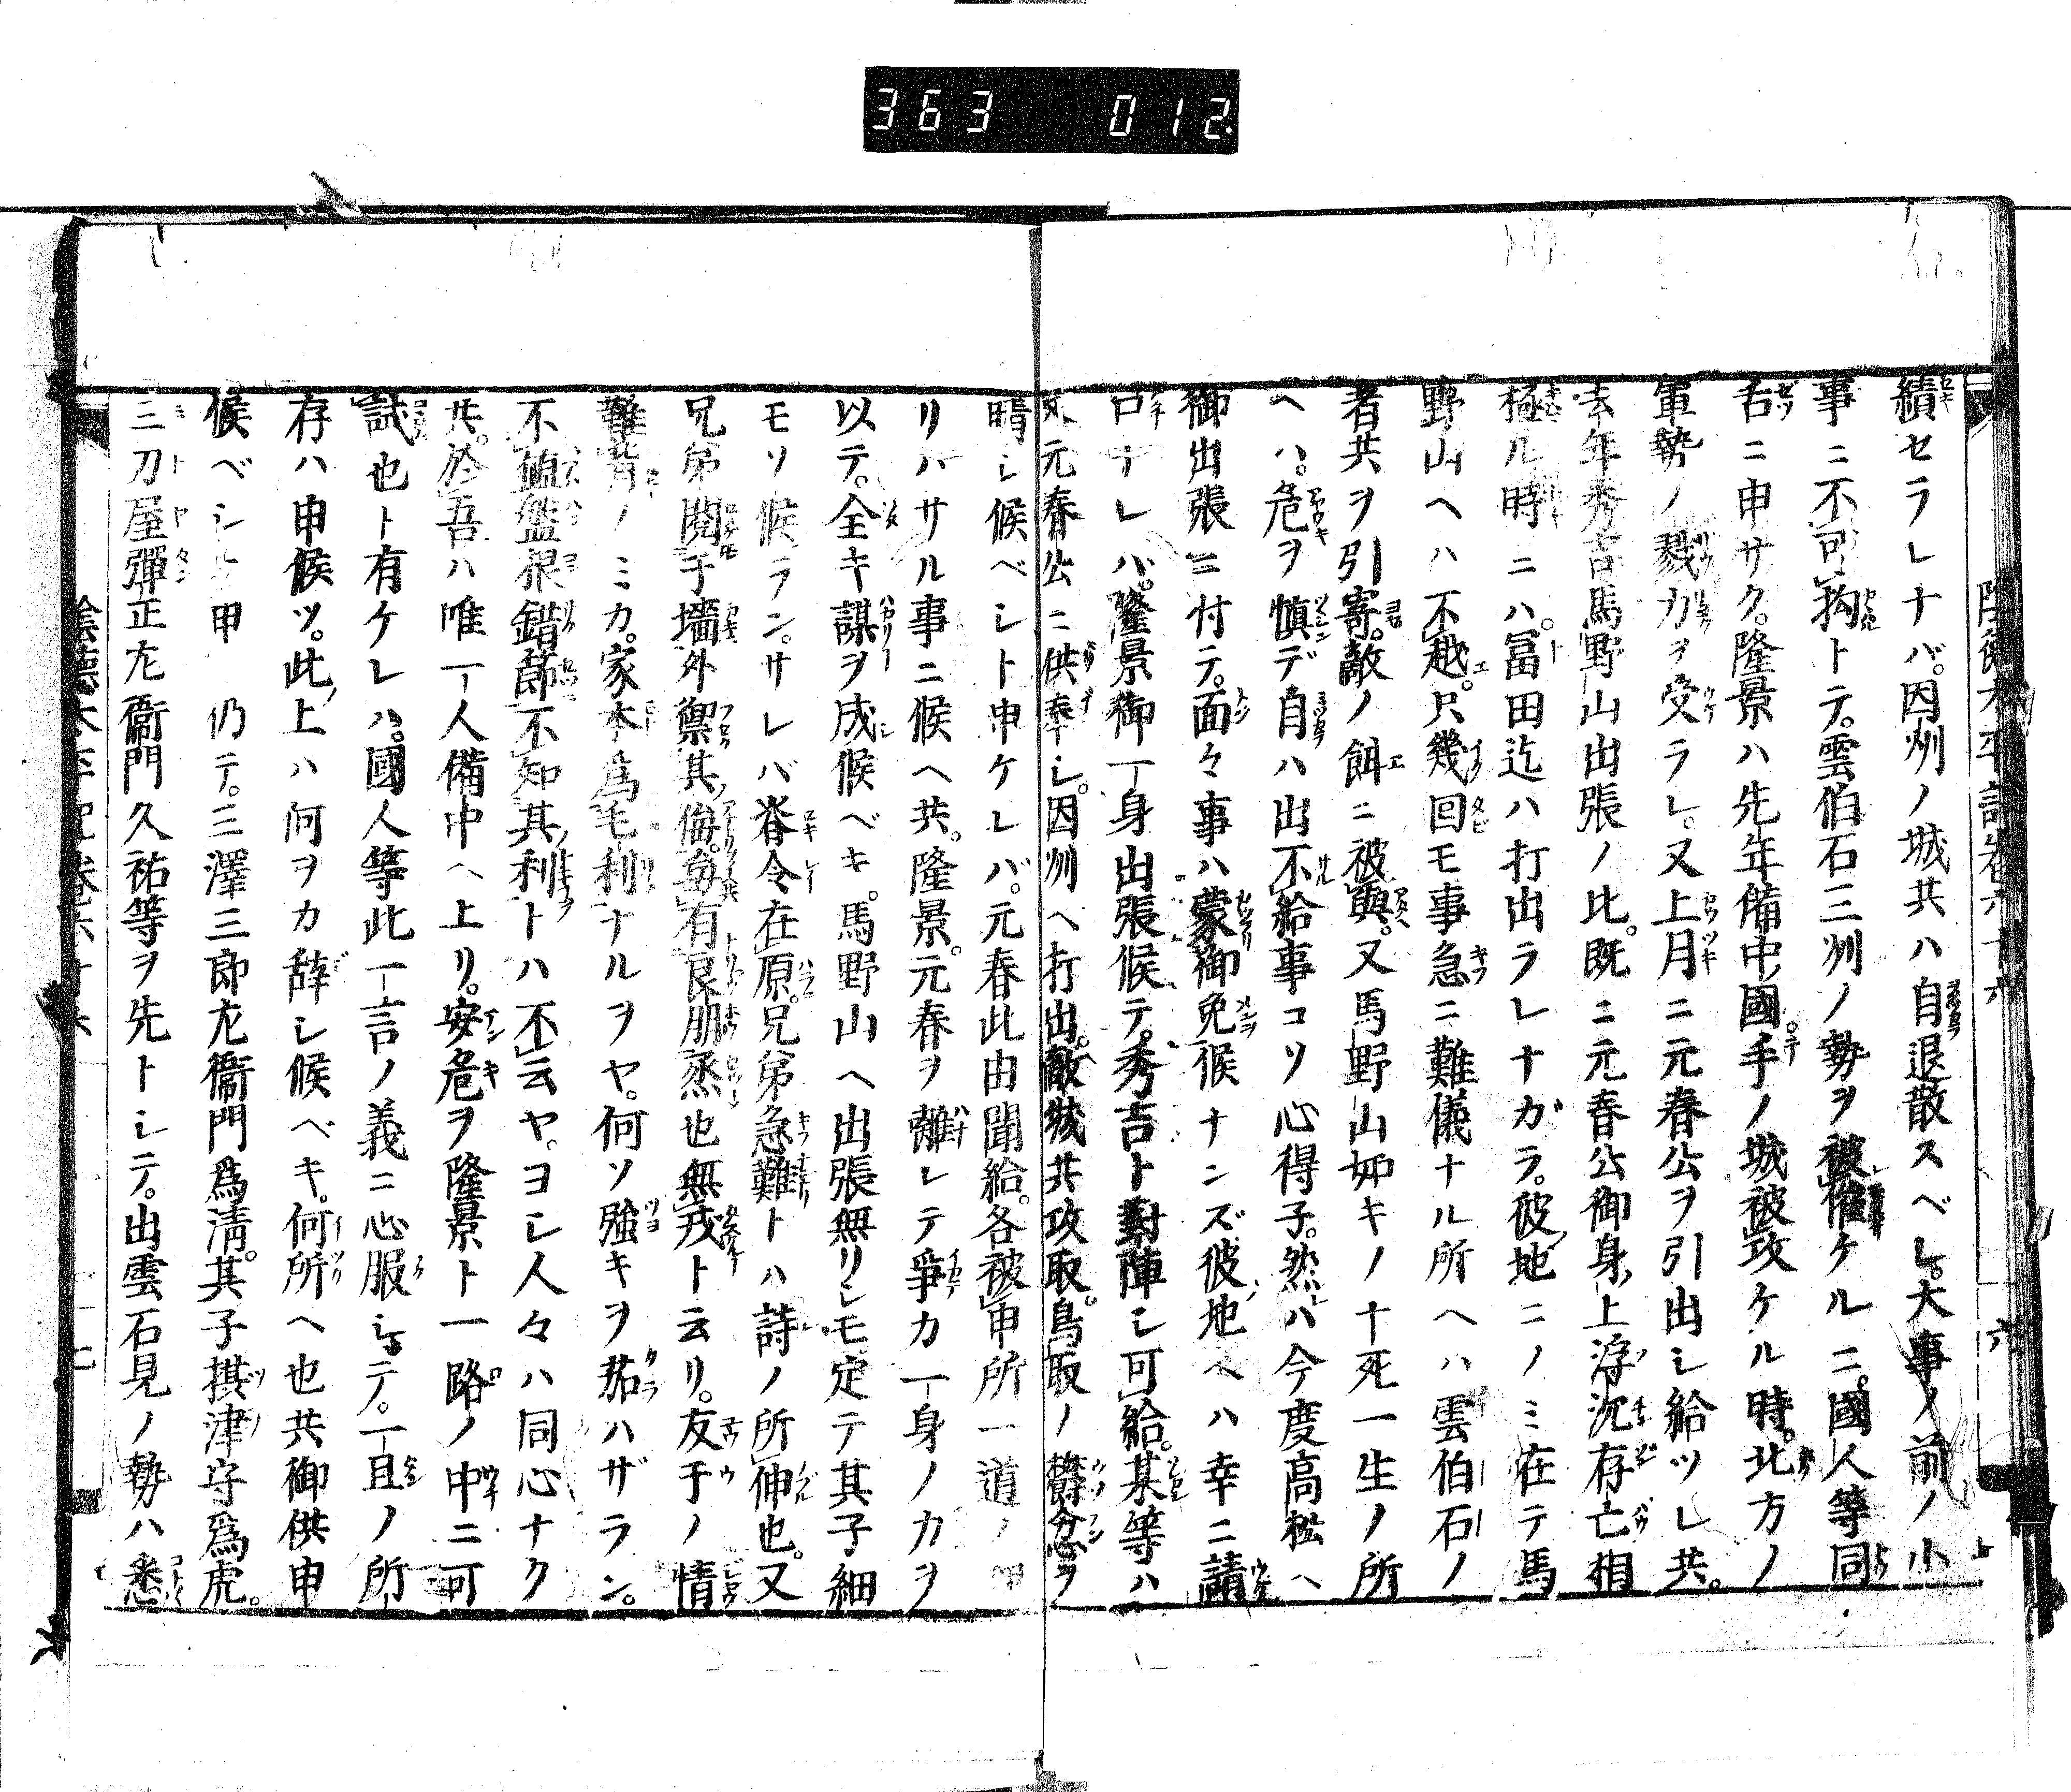 363 012
績セラレナバ。因州ノ城共ハ自退散スベレ。大事ノ前ノ小
事ニ不可拘トテ。雲伯石三州ノ勢ヲ被催ケルニ。國人等同
舌ニ申サク。隆景ハ先年備中國手ノ城被攻ケル時。北方ノ
軍勢ノ戮力ヲ受ラレ。又上月ニ元春公ヲ引出シ給ツレ共。
去年秀吉馬野山出張ノ比。既ニ元春公御身上浮沉存亡相
極ル時ニハ。冨田迄ハ打出ラレナガラ。彼地ニノミ在テ馬
野山ヘハ不越。只幾回モ事急ニ難儀ナル所ヘハ雲伯石ノ
者共ヲ引寄。敵ノ餌ニ被與。又馬野山如キノ十死一生ノ所
ヘハ。危ヲ慎デ自ハ出不給事コソ心得子。然ハ今度高松ヘ
御出張ニ付テ。面々事ハ蒙御免候ナンズ彼地ヘハ幸ニ請
口ナレバ。隆景御一身出張候テ。秀吉ト對陣シ可給。某等ハ
元春公ニ供奉シ。因州ヘ打出。敵城共攻取。鳥取ノ欝念ヲ
晴シ候ベシト申ケレバ。元春此由聞給。各被申所一道ノ
リハサル事ニ候ヘ共。隆景。元春ヲ離レテ爭カ一身ノカヲ
以テ。全キ謀ヲ成候ベキ。馬野山ヘ出張無リシモ定テ其子細
モソ候ラン。サレバ脊令在原。兄弟急難トハ詩ノ所伸也。又
兄弟鬩于墻外禦其侮。毎有良朋烝也無戎ト云リ。友于ノ情
難背ノミカ。家本爲毛利ナルヲヤ。何ソ強キヲ茹ハザラン。
不値盤根錯節不知其利トハ不云ヤ。ヨシ人々ハ同心ナク
共。於吾ハ唯一人備中ヘ上リ。安危ヲ隆景ト一路ノ中ニ可
試也ト有ケレハ。國人等此一言ノ義ニ心服シテ。一旦ノ所
存ハ申候ツ。此上ハ何ヲカ辞シ候ベキ。何所ヘ也共御供申
候ベシト申 仍テ。三澤三郎左衞門爲淸。其子摂津守爲虎。
三刀屋彈正左衞門久祐等ヲ先トシテ。出雲石見ノ勢ハ悉